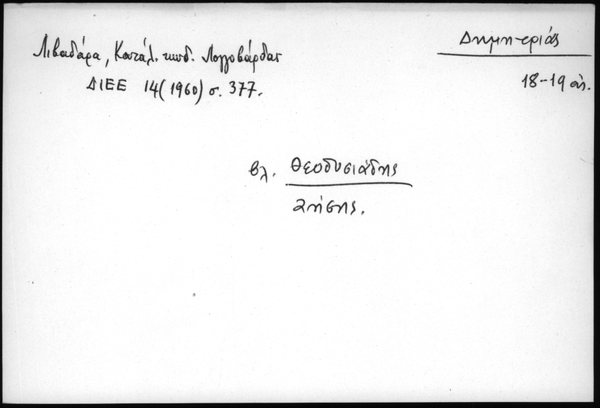 Δημητριάς
Λιβαδάρα, Κατάλ. κωδ. Λογγοβάρδας
18-19 αἰ.
ΔΙΕΕ 14(1960) σ. 377.
βλ. Θεοδοσιάδης
Ζήσης.